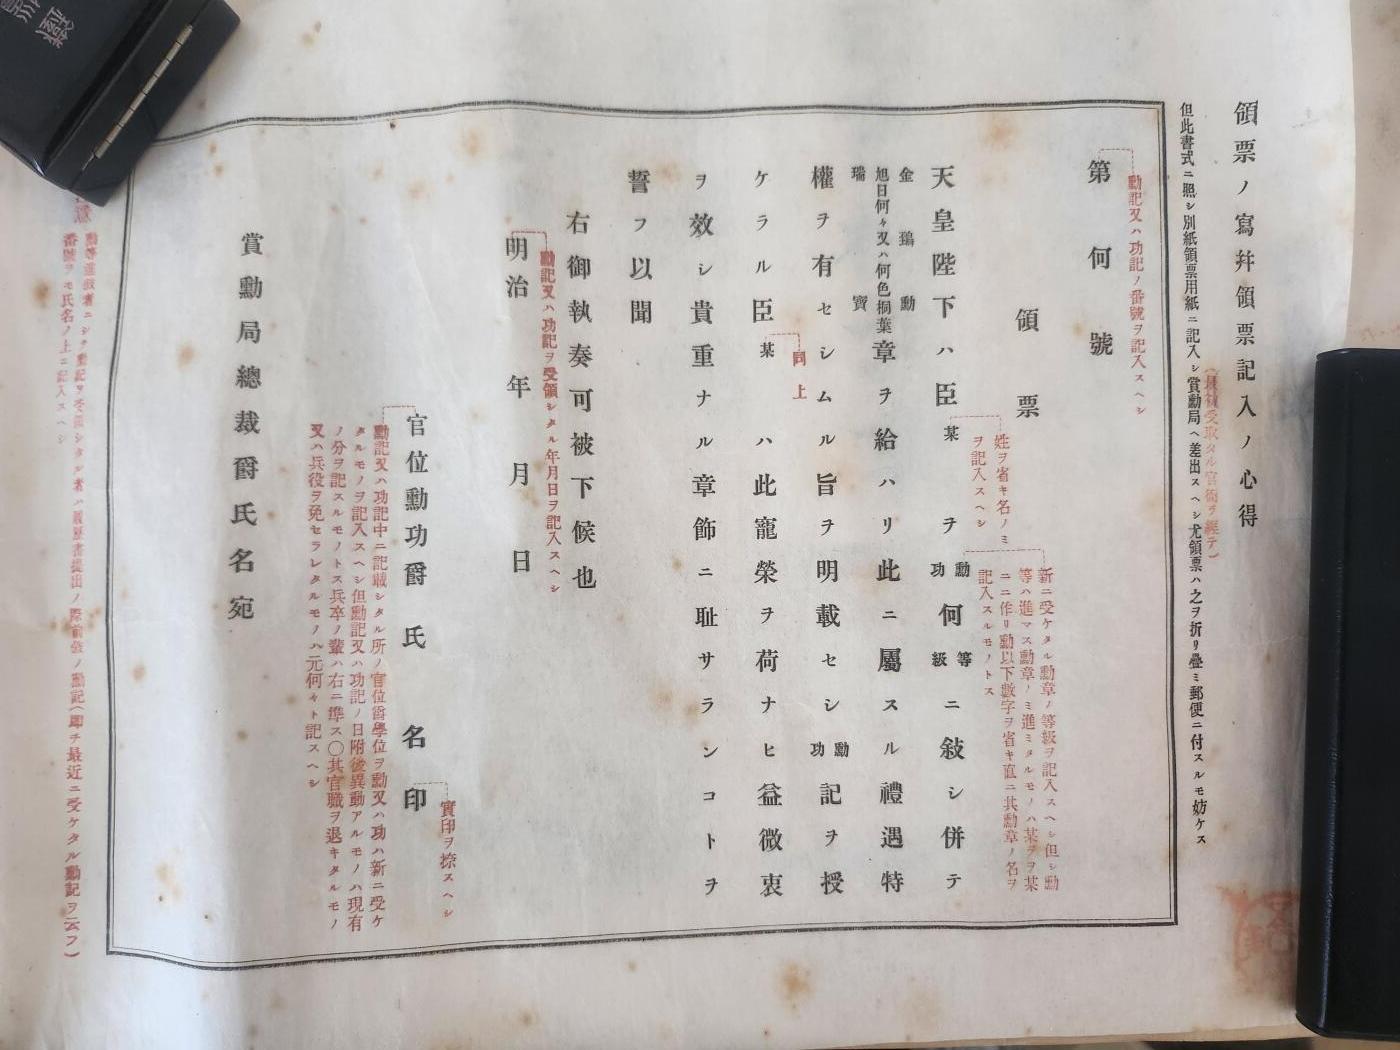 領票ノ寫幷領票記入ノ心得
(最初受取タル官衙ヲ經テ)
但此書式ニ照シ別紙領票用紙ニ記入シ賞勳局ヘ差出スヘシ尤領票ハ之ヲ折リ疊ミ郵便ニ付スルモ妨ケス
勳記又ハ功記ノ番號ヲ記入スヘシ
第何號
領票
新ニ受ケタル勳章ノ等級ヲ記入スヘシ但シ勳
等ハ進マス勳章ノミ進ミタルモノハ某ヲヲ某
ニニ作リ勳以下數字ヲ省キ直ニ其勳章ノ名ヲ
記入スルモノトス
姓ヲ省キ名ノミ
ヲ記入スヘシ
天皇陛下ハ臣某ヲ勳功何等級ニ敍シ併テ
金鵄勳
旭日何々又ハ何色桐葉章ヲ給ハリ此ニ屬スル禮遇特
瑞寶
權ヲ有セシムル旨ヲ明載セシ勳功記ヲ授
同上
ケラル臣某ハ此寵榮ヲ荷ナヒ益微衷
ヲ效シ貴重ナル章飾ニ耻サランコトヲ
誓フ以聞
右御執奏可被下候也
勳記又ハ功記ヲ受領シタル年月日ヲ記入スヘシ
明治年月日
實印ヲ捺スヘシ
官位勳功爵氏名印
勳記又ハ功記中ニ記載シタル所ノ官位爵學位ヲ勳又ハ功ハ新ニ受ケ
タルモノヲ記入スヘシ但勳記又ハ功記ノ日附後異動アルモノハ現有
ノ分ヲ記スルモノトス兵卒ノ輩ハ右ニ準ス〇其官職ヲ退キタルモノ
又ハ兵役ヲ免セラレタルモノハ元何々ト記スヘシ
賞勳局總裁爵氏名宛
勳等進敍者ニシテ勳記ヲ受領シタル者ハ履歷書提出ノ際前發ノ勳記(卽チ最近ニ受ケタル勳記ヲ云フ)
番號ヲモ氏名ノ上ニ記入スヘシ